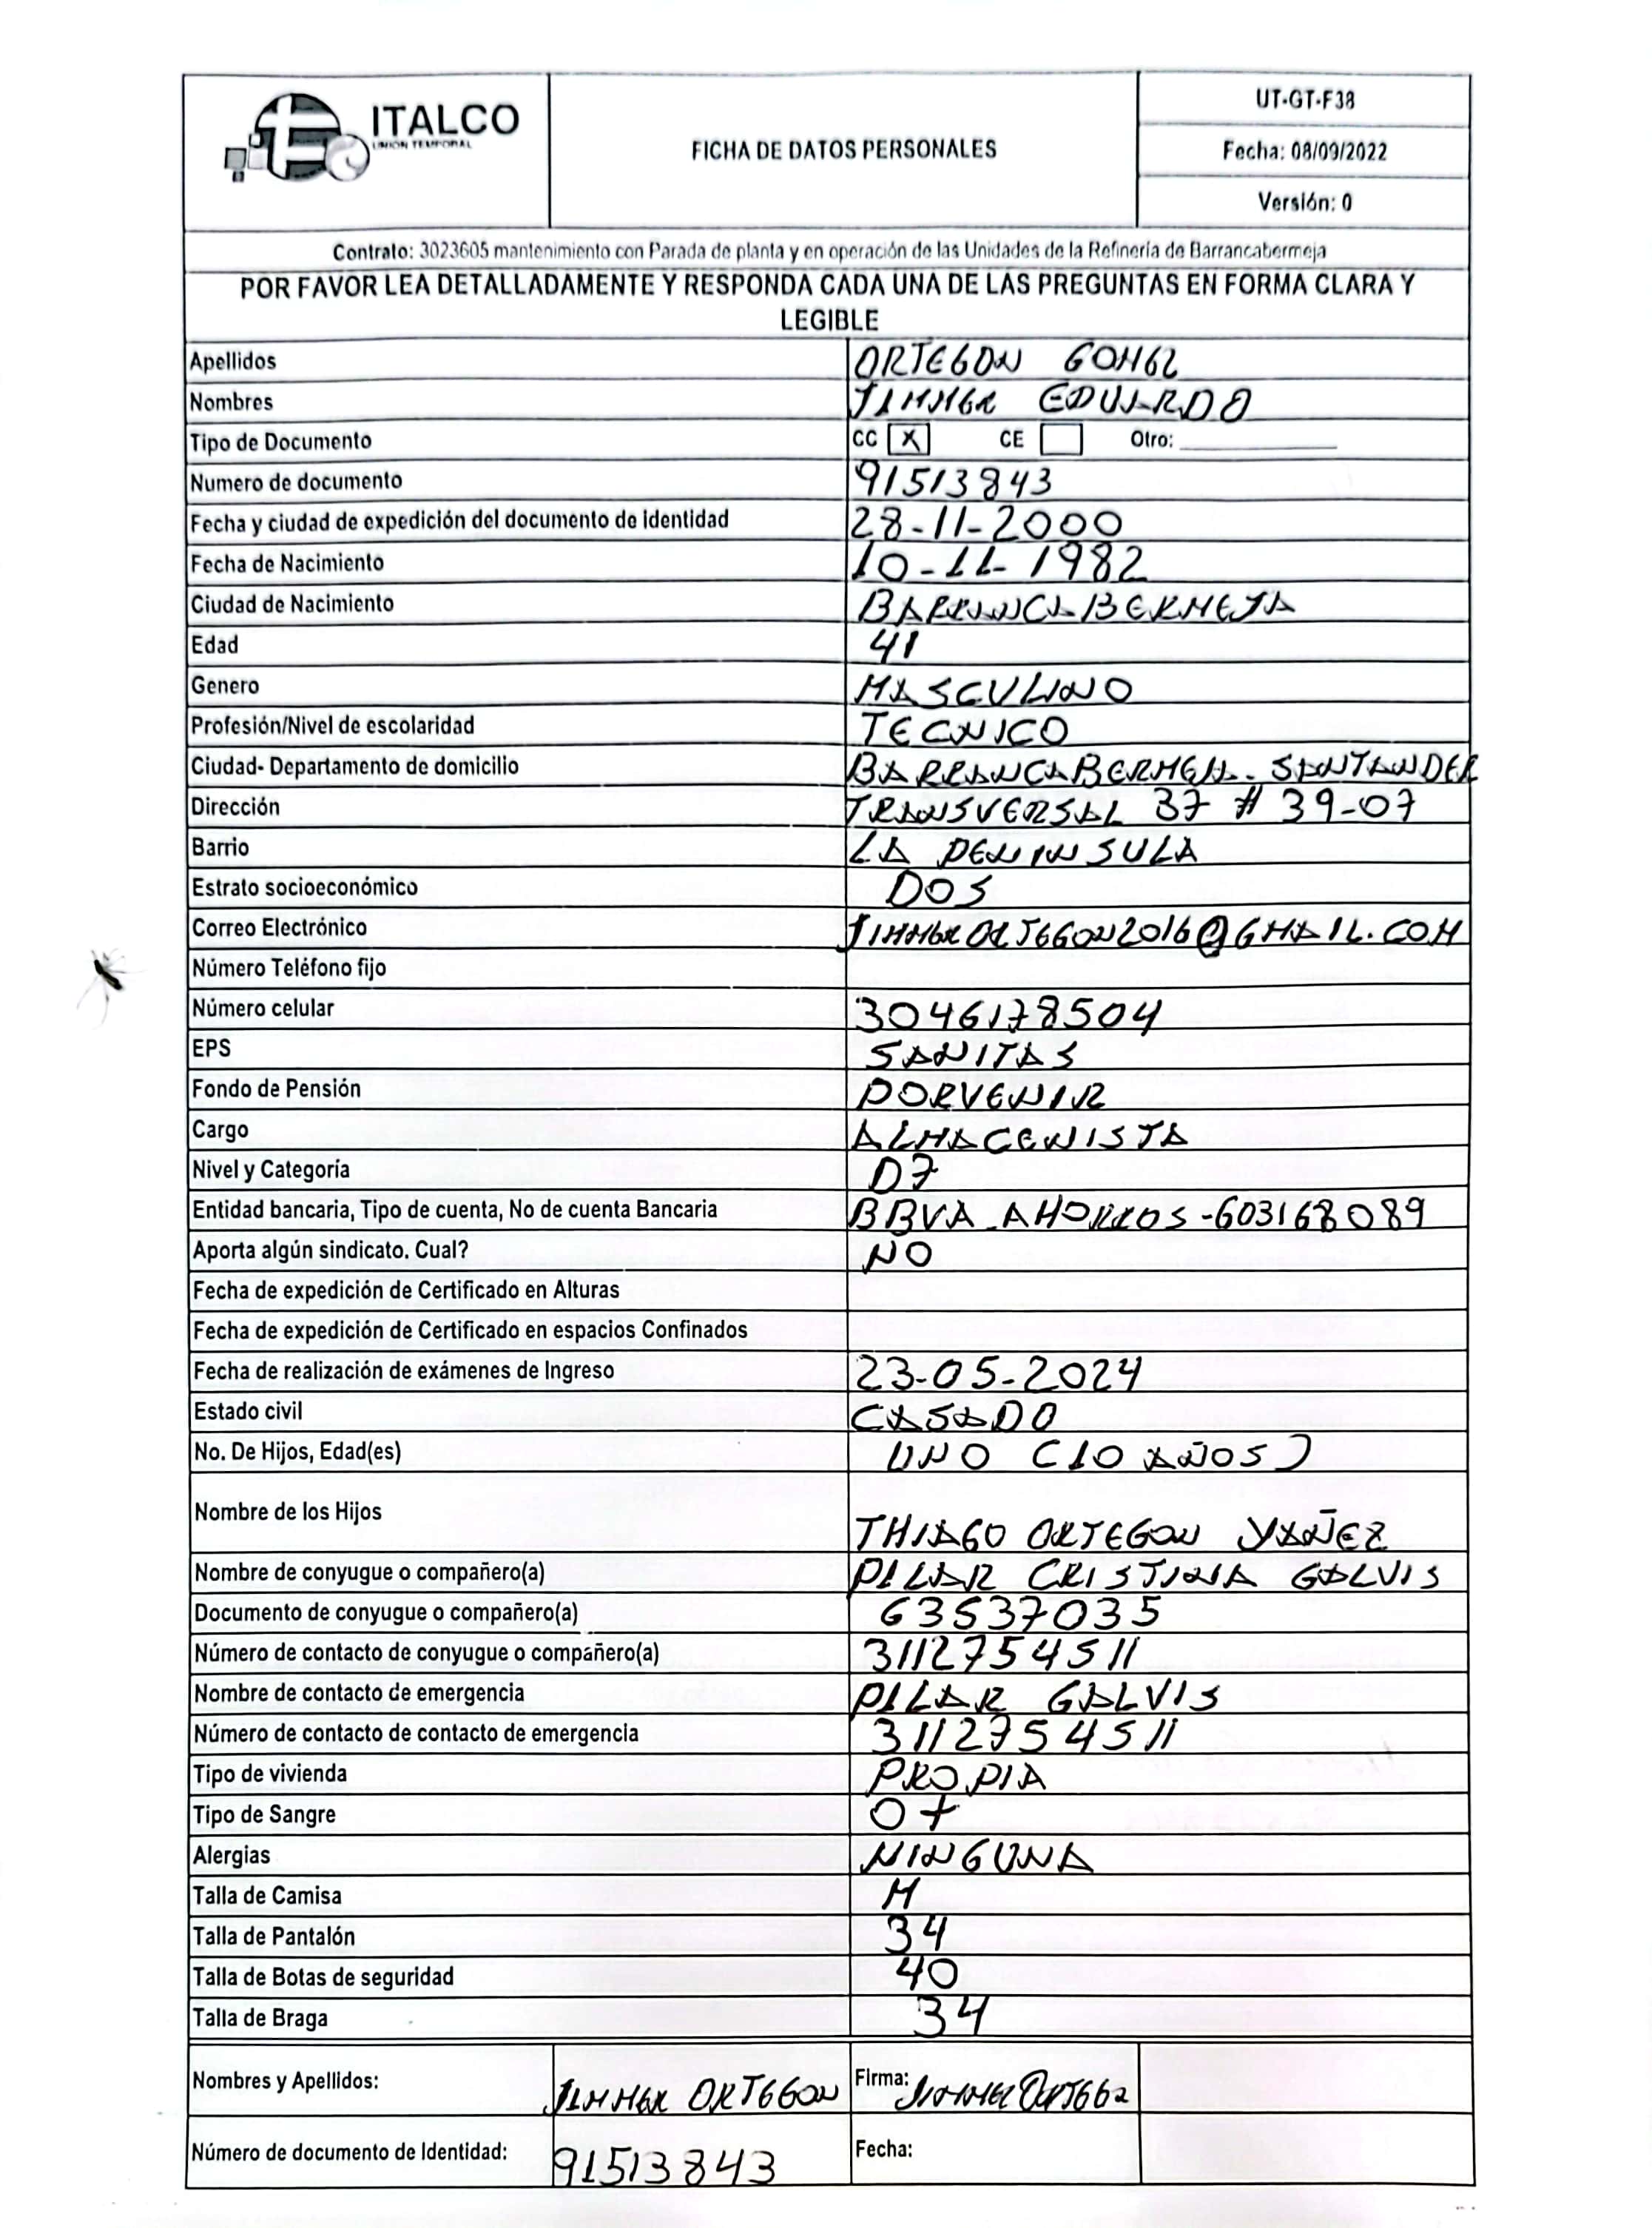 ITALCO
UNION TEMPORAL
FICHA DE DATOS PERSONALES
UT-GT-F38
Fecha: 08/09/2022
Versión: 0
Contrato: 3023605 mantenimiento con Parada de planta y en operación de las Unidades de la Refinería de Barrancabermeja
POR FAVOR LEA DETALLADAMENTE Y RESPONDA CADA UNA DE LAS PREGUNTAS EN FORMA CLARA Y
LEGIBLE
Apellidos ORTEGON GOMEZ
Nombres JIMMER EDUARDO
Tipo de Documento CC X CE Otro:
Numero de documento 91513843
Fecha y ciudad de expedición del documento de identidad 28-11-2000
Fecha de Nacimiento 10-11-1982
Ciudad de Nacimiento BARRANCABERMEJA
Edad 41
Genero MASCULINO
Profesión/Nivel de escolaridad TECNICO
Ciudad- Departamento de domicilio BARRANCABERMEJA. SANTANDER
Dirección TRANSVERSAL 37 # 39-07
Barrio LA PENINSULA
Estrato socioeconómico DOS
Correo Electrónico JIMMERORTEGON2016@GMAIL.COM
Número Teléfono fijo
Número celular 3046178504
EPS SANITAS
Fondo de Pensión PORVENIR
Cargo ALMACENISTA
Nivel y Categoría D7
Entidad bancaria, Tipo de cuenta, No de cuenta Bancaria BBVA AHORROS-603168089
Aporta algún sindicato. Cual? NO
Fecha de expedición de Certificado en Alturas
Fecha de expedición de Certificado en espacios Confinados
Fecha de realización de exámenes de Ingreso 23-05-2024
Estado civil CASADO
No. De Hijos, Edad(es) UNO (10 AÑOS)
Nombre de los Hijos THIAGO ORTEGON YAÑEZ
Nombre de conyugue o compañero(a) PILAR CRISTINA GALVIS
Documento de conyugue o compañero(a) 63537035
Número de contacto de conyugue o compañero(a) 3112754511
Nombre de contacto de emergencia PILAR GALVIS
Número de contacto de contacto de emergencia 3112754511
Tipo de vivienda PROPIA
Tipo de Sangre O+
Alergias NINGUNA
Talla de Camisa M
Talla de Pantalón 34
Talla de Botas de seguridad 40
Talla de Braga 34
Nombres y Apellidos: JIMMER ORTEGON Firma: JIMMER ORTEGON
Número de documento de Identidad: 91513843 Fecha: